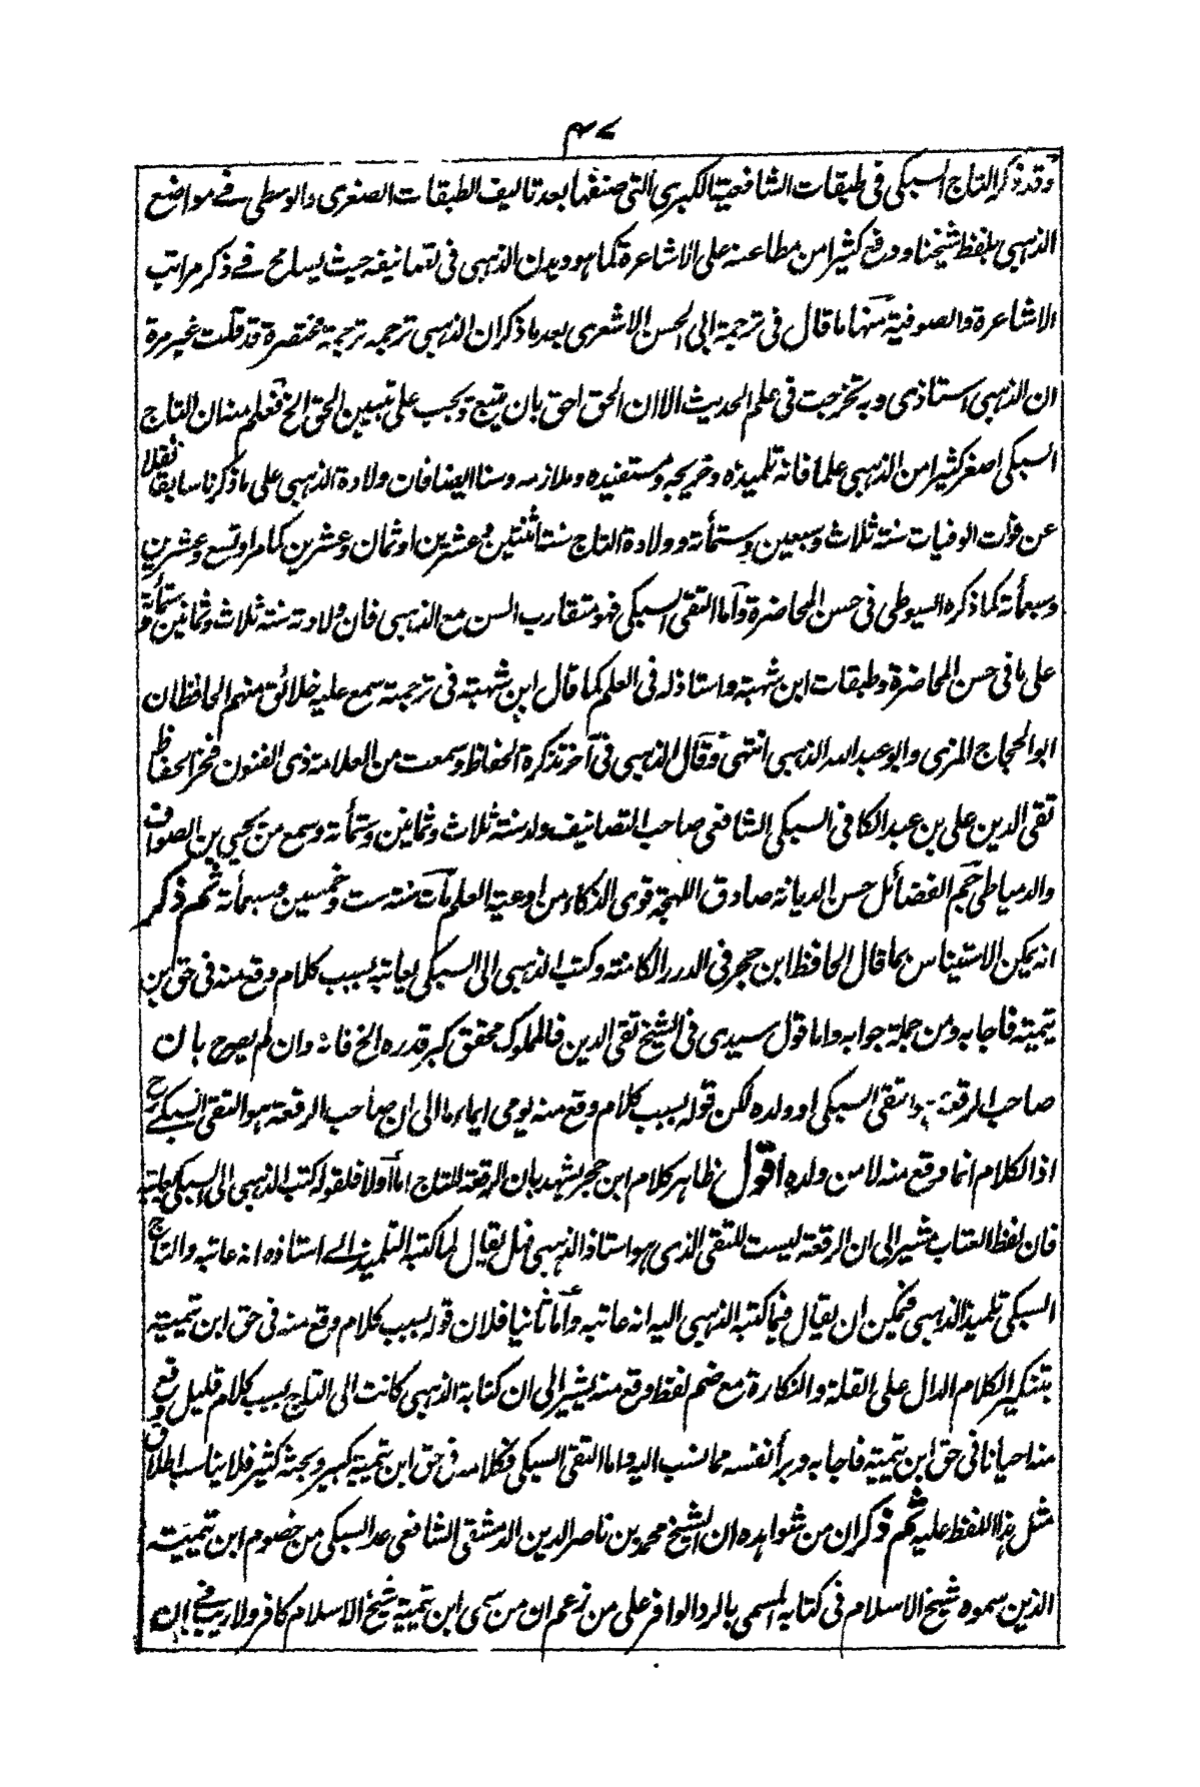 ٤٧
وقد ذكر التاج السبكى فى طبقات الشافعية الكبرى التى صنفها بعد تاليف الطبقات الصغرى والوسطى فے مواضع
الذهبى بلفظ شيخنا ودفع كثيرا من مطاعنه على الاشاعرة كما هو ديدن الذهبى فى تصانيفه حيث يسامح فے ذكر مراتب
الاشاعرة والصوفية منها ما قال فى ترجمة ابى الحسن الاشعرى بعد ما ذكر ان الذهبى ترجمه ترجمة مختصرة قد قلت غير مرة
ان الذهبى استاذى وبه تخرجت فى علم الحديث الا ان الحق احق بان يتبع ويجب على تبيين الحق الخ فعلم منه ان التاج
السبكى اصغر كثيرا من الذهبى علما فانه تلميذه وخريجه ومستفيده وملازمه وسنا ايضا فان ولادة الذهبى على ما ذكرنا سابقا نقلا
عن فوات الوفيات سنة ثلاث وسبعين وستمأته وولادة التاج سنة اثنتين وعشرين او ثمان وعشرين كما مر او تسع وعشرين
وسبعمأته كما ذكره السيوطى فى حسن المحاضرة وآما التقى السبكى فهو متقارب السن مع الذهبى فان ولادته سنة ثلاث وثمانين وستمأته
على ما فى حسن المحاضرة وطبقات ابن شهبة واستاذ له فى العلم كما قال ابن شهبة فى ترجمته سمع عليه خلائق منهم الحافظان
ابو الحجاج المزى وابو عبد الله الذهبى انتهى وقال الذهبى فى آخر تذكرة الحفاظ وسمعت من العلامة ذى الفنون فخر الحفاظ
تقى الدين على بن عبد الكافى السبكى الشافعى صاحب التصانيف ولد سنة ثلاث وثمانين وستمأته وسمع من يحيى بن الصواف
والدمياطى جم الفضائل حسن الديانة صادق اللهجة قوى الذكاء من اوعية العلم مات سنة ست وخمسين وسبعمأته ثم ذكر
انه يمكن الاستيناس بما قال الحافظ ابن حجر فى الدرر الكامنة وكتب الذهبى الى السبكى يعاتبه بسبب كلام وقع منه فى حق ابن
تيمية فاجابه ومن جملة جوابه واما قول سيدى فى الشيخ تقى الدين فالمملوك محقق كبر قدره الخ فانه وان لم يصرح بان
صاحب الرقعة هو التقى السبكى او ولده لكن قوله بسبب كلام وقع منه يومى ايماء ما الى ان صاحب الرقعة هو التقى السبكے رح
اذ الكلام انما وقع منه لا من ولده اقول ظاهر كلام ابن حجر يشهد بان الرقعة للتاج اما اولا فلقوله كتب الذهبى الى السبكى يعاتبه
فان لفظ العتاب مشير الى ان الرقعة ليست للتقى الذى هو استاذ الذهبى فهل يقال لما كتبه التلميذ الے استاذه انه عاتبه والتاج
السبكى تلميذ الذهبى فيمكن ان يقال فيما كتبه الذهبى اليه انه عاتبه وآما ثانيا فلان قوله بسبب كلام وقع منه فى حق ابن تيمية
بتنكير الكلام الدال على القلة والنكارة مع ضم لفظ وقع منه يشير الى ان كتابة الذهبى كانت الى التاج بسبب كلام قليل وقع
منه احيانا فى حق ابن تيمية فاجابه وبرأ نفسه مما نسب اليه واما التقى السبكى فكلامه فى حق ابن تيمية كبير وبحثه كثير فلا يناسب اطلاق
مثل هذا اللفظ عليه ثم ذكر ان من شواهده ان الشيخ محمد بن ناصر الدين الدمشقى الشافعى عد السبكى من خصوم ابن تيمية
الذين سموه شيخ الاسلام فى كتابه المسمى بالرد الوافر على من زعم ان من سمى ابن تيمية شيخ الاسلام كافر ولا ريب فے ان